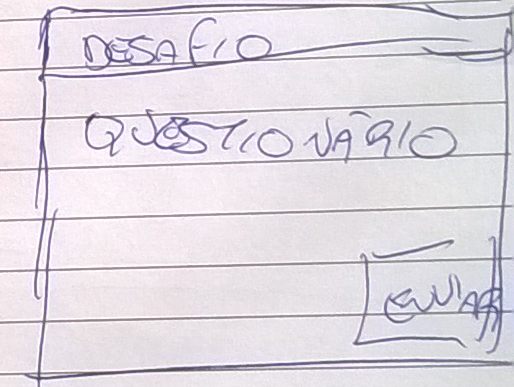 DESAFIO
QUESTIONÁRIO
ENVIAR